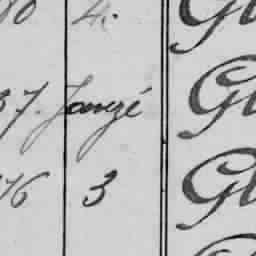 4. Gl
37. Janzé Gl
76 3 Gl